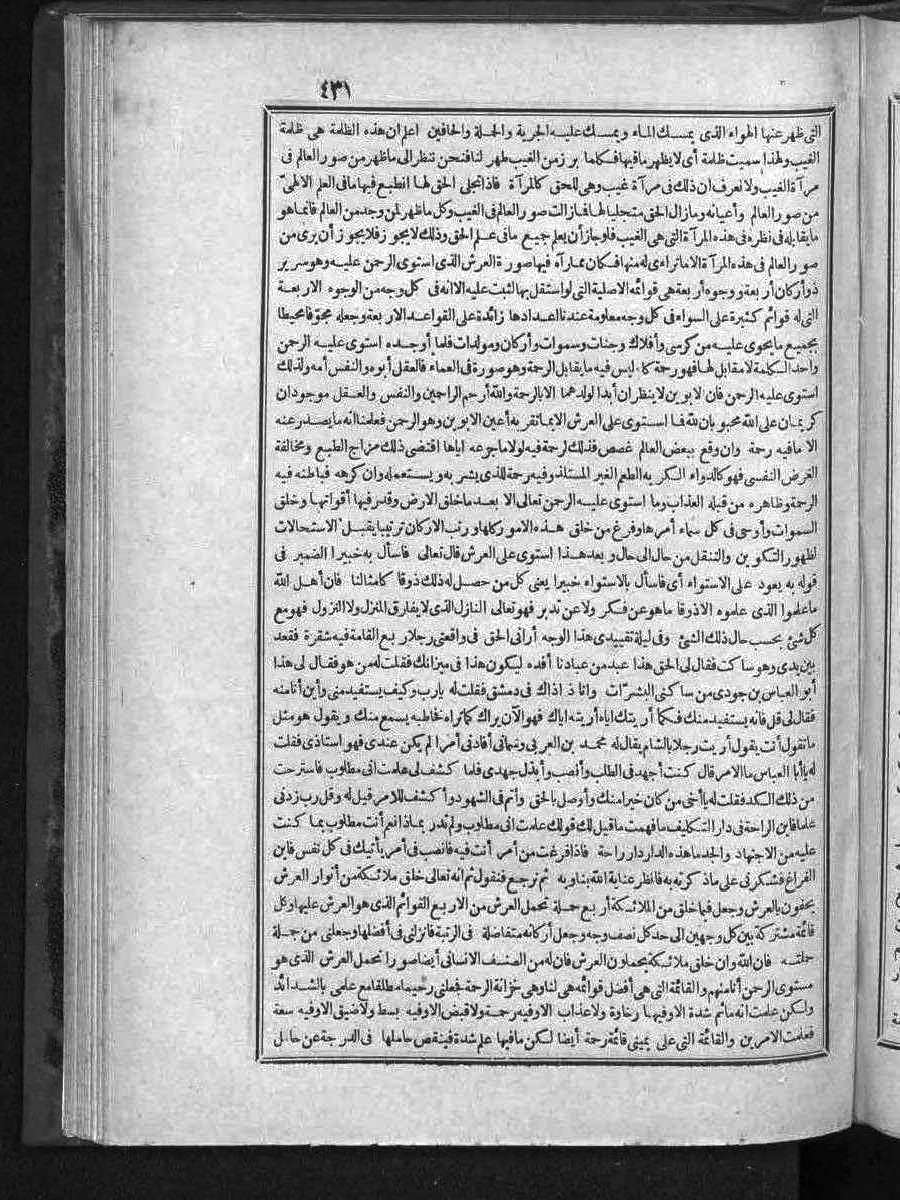 ٤٣١
التى ظهر عنها الهواء الذى يمسك الماء ويمسك عليه الجرية والجلة والحافين اعلم ان هذه الظلمة هى ظلمة
الغيب ولهذا سميت ظلمة أى لا يظهر ما فيها فكلما برز من الغيب ظهر لنا فنحن ننظر الى ما ظهر من صور العالم فى
مرآة الغيب ولا نعرف ان ذلك فى مرآة غيب وهى للحق كالمرآة فاذا تجلى الحق لها انطبع فيها ما فى العلم الالهىّ
من صور العالم وأعيانه وما زال الحق متجليا لها فما زالت صور العالم فى الغيب وكل ما ظهر لمن وجد من العالم فانما هو
ما يقابله فى نظره فى هذه المرآة التى هى الغيب فلو جاز أن يعلم جميع ما فى علم الحق وذلك لا يجوز فلا يجوز أن يرى من
صور العالم فى هذه المرآة الا ما تراءى له منها فكان مما رآه فيها صورة العرش الذى استوى الرحمن عليه وهو سرير
ذو أركان أربعة ووجوه أربعة هى قوائمه الاصلية التى لو استقل بها لثبت عليه الا انه فى كل وجه من الوجوه الاربعة
التى له قوائم كثيرة على السواء فى كل وجه معلومة عندنا اعدادها زائدة على القواعد الاربعة وجعله مجوّفا محيطا
بجميع ما يحوى عليه من كرسى وأفلاك وجنات وسموات وأركان ومولدات فلما أوجده استوى عليه الرحمن
واحد الكلمة لا مقابل لها فهو رحمة كله ليس فيه ما يقابل الرحمة وهو صورة فى العماء فالعقل أبوه والنفس أمه ولذلك
استوى عليه الرحمن فان الابوين لا ينظران أبدا لولدهما الا بالرحمة والله أرحم الراحمين والنفس والعقل موجودان
كريمان على الله محبوبان لله فما استوى على العرش الا بما تقر به أعين الابوين وهو الرحمن فعلمنا انه ما يصدر عنه
الا ما فيه رحمة وان وقع ببعض العالم غصص فذلك لرحمة فيه لولا ما جرعه اياها اقتضى ذلك مزاج الطبع ومخالفة
الغرض النفسى فهو كالدواء الكريه الطعم الغير المستلذ وفيه رحمة للذى يشربه ويستعمله وان كرهه فباطنه فيه
الرحمة وظاهره من قبله العذاب وما استوى عليه الرحمن تعالى الا بعد ما خلق الارض وقدر فيها أقواتها وخلق
السموات وأوحى فى كل سماء أمرها وفرغ من خلق هذه الامور كلها ورتب الاركان ترتيبا يقبل الاستحالات
لظهور التكوين والتنقل من حال الى حال وبعد هذا استوى على العرش قال تعالى فاسأل به خبيرا الضمير فى
قوله به يعود على الاستواء أى فاسأل بالاستواء خبيرا يعنى كل من حصل له ذلك ذوقا كامثالنا فان أهل الله
ما علموا الذى علموه الا ذوقا ما هو عن فكر ولا عن تدبر فهو تعالى النازل الذى لا يفارق المنزل ولا النزول فهو مع
كل شئ بحسب حال ذلك الشئ وفى ليلة تقييدى هذا الوجه أرانى الحق فى واقعتى رجلا ربع القامة فيه شقرة فقعد
بين يدى وهو ساكت فقال لى الحق هذا عبد من عبادنا أفده ليكون هذا فى ميزانك فقلت له من هو فقال لى هذا
أبو العباس بن جودى من ساكنى البشرات وانا اذ ذاك فى دمشق فقلت له يارب وكيف يستفيد منى وأين أنا منه
فقال لى قل فانه يستفيد منك فكما أريتك اياه أريته اياك فهو الآن يراك كما تراه فخاطبه يسمع منك ويقول هو مثل
ما تقول أنت يقول أريت رجلا بالشام يقال له محمد بن العربى وسمانى أفادنى أمرا لم يكن عندى فهو استاذى فقلت
له يا أبا العباس ما الامر قال كنت أجهد فى الطلب وأنصب وأبذل جهدى فلما كشف لى علمت انى مطلوب فاسترحت
من ذلك الكد فقلت له يا أخى من كان خيرا منك وأوصل بالحق وأتم فى الشهود وأكشف للامر قيل له وقل رب زدنى
علما فاين الراحة فى دار التكليف ما فهمت ما قيل لك قولك علمت انى مطلوب ولم تدر بماذا نعم أنت مطلوب بما كنت
عليه من الاجتهاد والجد ما هذه الدار دار راحة فاذا فرغت من أمر أنت فيه فانصب فى أمر يأتيك فى كل نفس فاين
الفراغ فشكرنى على ما ذكرته به فانظر عناية الله بنا وبه ثم نرجع فنقول ثم انه تعالى خلق ملائكة من أنوار العرش
يحفون بالعرش وجعل فيما خلق من الملائكة أربع حملة تحمل العرش من الاربع القوائم الذى هو العرش عليها وكل
قائمة مشتركة بين كل وجهين الى حد كل نصف وجه وجعل أركانه متفاضلة فى الرتبة فانزلنى فى أفضلها وجعلنى من جملة
حملته فان الله وان خلق ملائكة يحملون العرش فان له من الصنف الانسانى أيضا صورا تحمل العرش الذى هو
مستوى الرحمن أنا منهم والقائمة التى هى أفضل قوائمه هى لنا وهى خزانة الرحمة فجعلنى رحيما مطلقا مع علمى بالشدائد
ولكن علمت انه ما ثم شدة الا وفيها رخاوة ولا عذاب الا وفيه رحمة ولا قبض الا وفيه بسط ولا ضيق الا وفيه سعة
فعلمت الامرين والقائمة التى على يمينى قائمة رحمة أيضا لكن ما فيها علم شدة فينقص حاملها فى الدرجة عن حامل